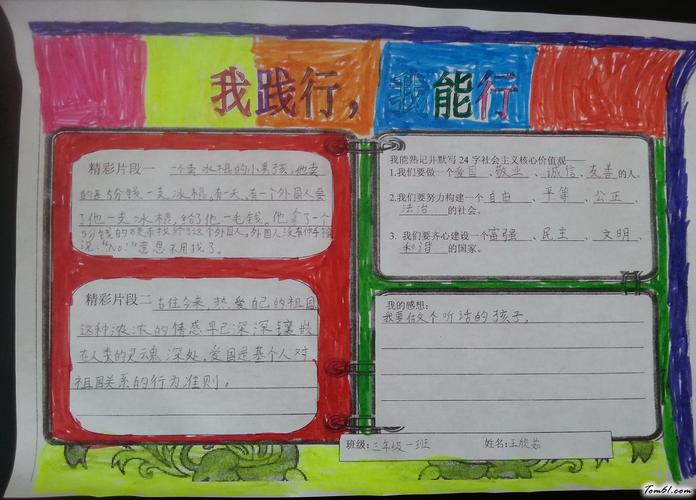 我践行，我能行
精彩片段一 一个卖冰棍的小男孩，他卖
的是5分钱一支冰棍，有一天，有一个外国人要
了他一支冰棍，给了他一毛钱。他拿了一个
5分钱的硬币找给了这个外国人。外国人没有伸手接
说："No!"意思不用找了。
精彩片段二 古往今来，热爱自己的祖国
这种浓浓的情感早已深深镶嵌
在人类的灵魂深处，爱国是基个人对
祖国关系的行为准则。
我能熟记并默写24字社会主义核心价值观——
1.我们要做一个爱国、敬业、诚信、友善的人。
2.我们要努力构建一个自由、平等、公正、
法治的社会。
3. 我们要齐心建设一个富强、民主、文明、
和谐的国家。
我的感想：
我要做个听话的孩子。
班级：三年级一班 姓名：王欣茹
Tom61.com